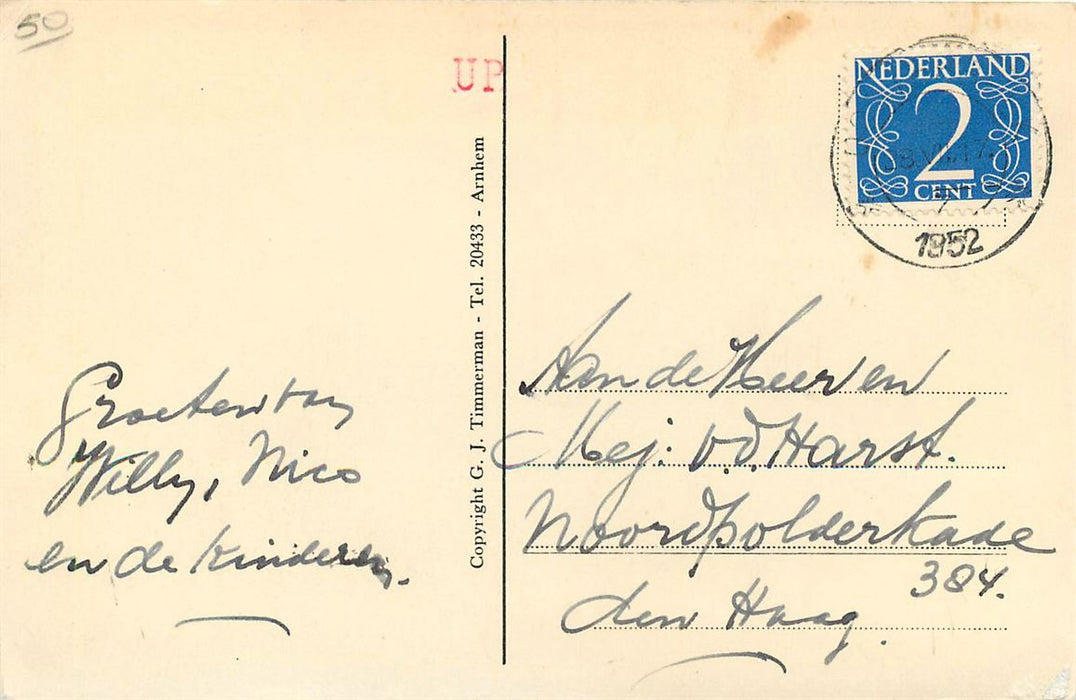 50
UP
NEDERLAND
2
CENT
1952
Groeten van
Willy, Nico
en de kinderen.
Copyright G. J. Timmerman - Tel. 20433 - Arnhem
Aan de Heer en
Mej: v.d. Harst.
Noordpolderkade
384.
den Haag.